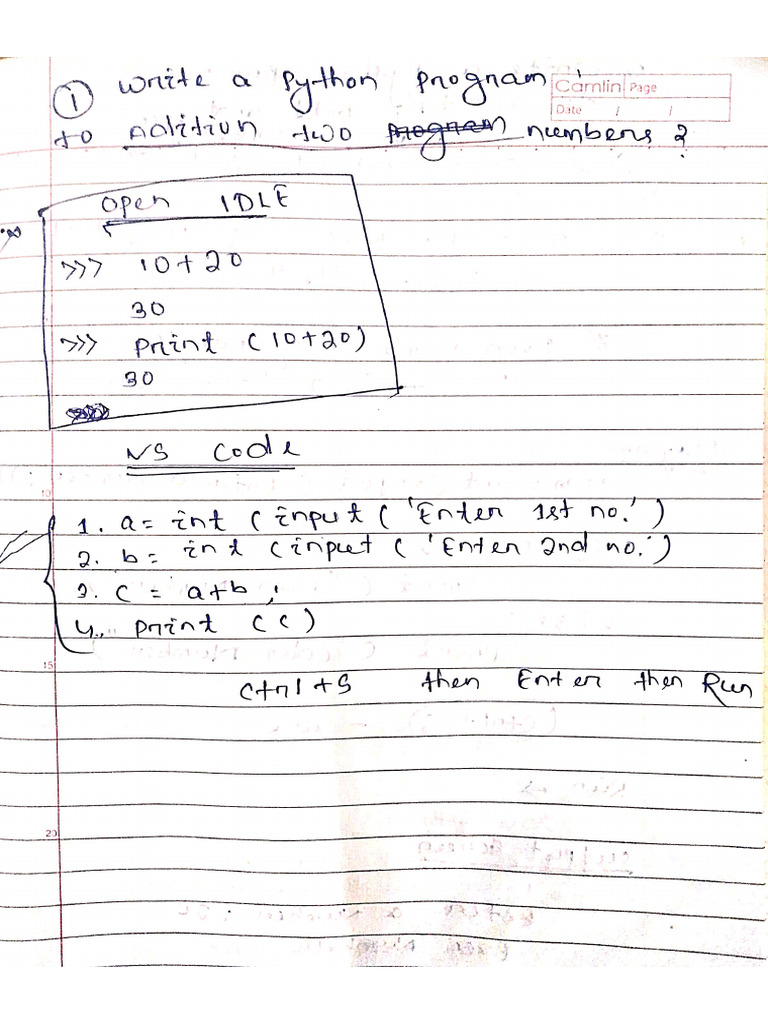 ① Write a Python program
Camlin Page
Date / /
to Adition two program numbers ?
Open IDLE
>>> 10+20
30
>>> print (10+20)
30
VS Code
10
1. a= int (input ( 'Enter 1st no.' )
2. b= int (input ( 'Enter 2nd no.' )
3. c = a+b ;
4. print (c)
15
ctrl+S then Enter then Run
20